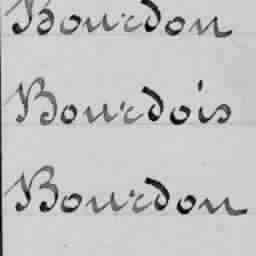 Bourdon
Bourdois
Bourdon